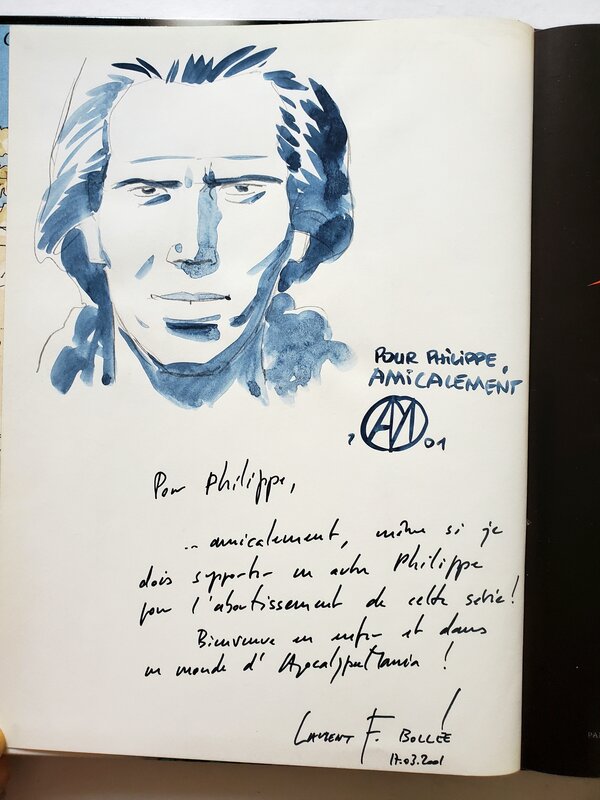 POUR PHILIPPE,
AMICALEMENT
AM 01
Pour Philippe,
.. amicalement, même si je
dois supporter un autre Philippe
pour l'aboutissement de cette série !
Bienvenue en enfer et dans
un monde d'ApocalypseMania !
LAURENT F. BOLLÉE
17.03.2001